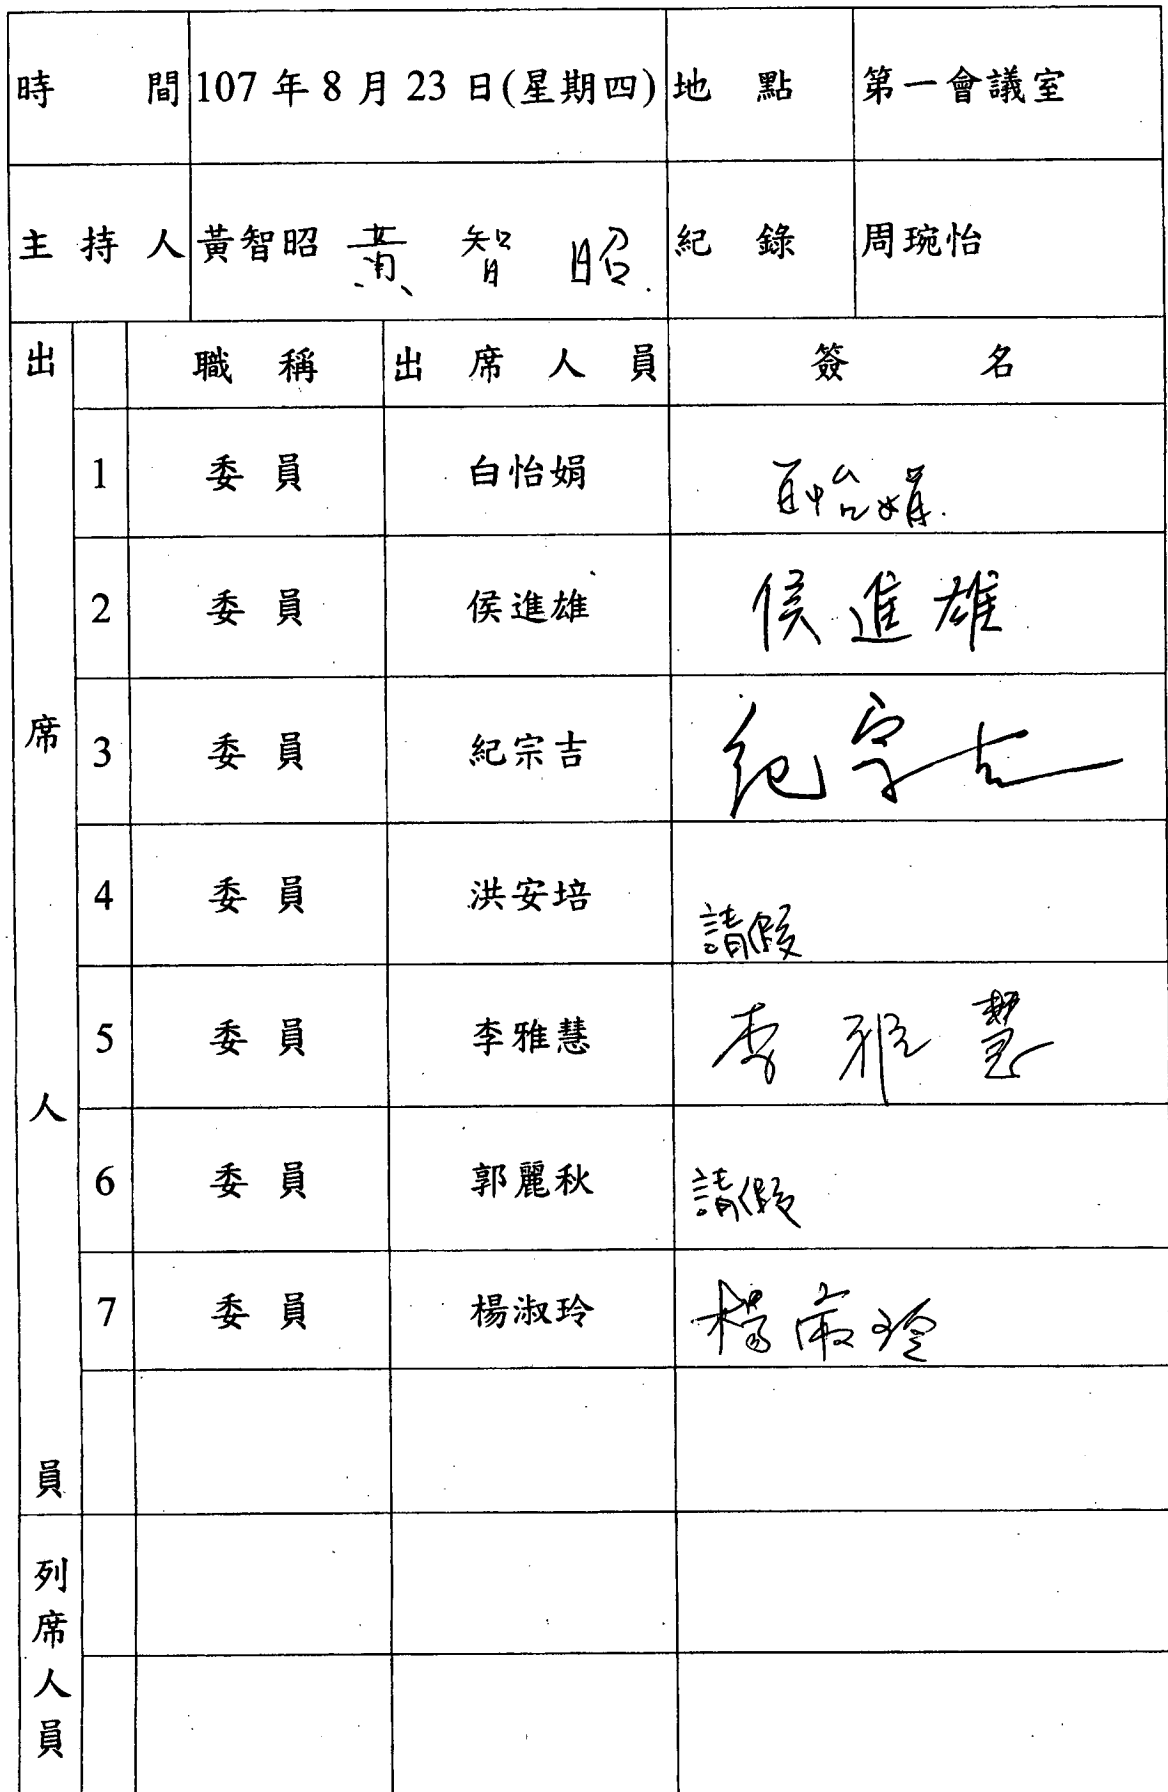 時 間 107 年 8 月 23 日(星期四) 地 點 第一會議室
主 持 人 黃智昭 黃 智 昭 紀 錄 周琬怡
出 席 人 員
職 稱 出 席 人 員 簽 名
1 委 員 白怡娟 白怡娟
2 委 員 侯進雄 侯進雄
3 委 員 紀宗吉 紀宗吉
4 委 員 洪安培 請假
5 委 員 李雅慧 李雅慧
6 委 員 郭麗秋 請假
7 委 員 楊淑玲 楊淑玲
列席人員